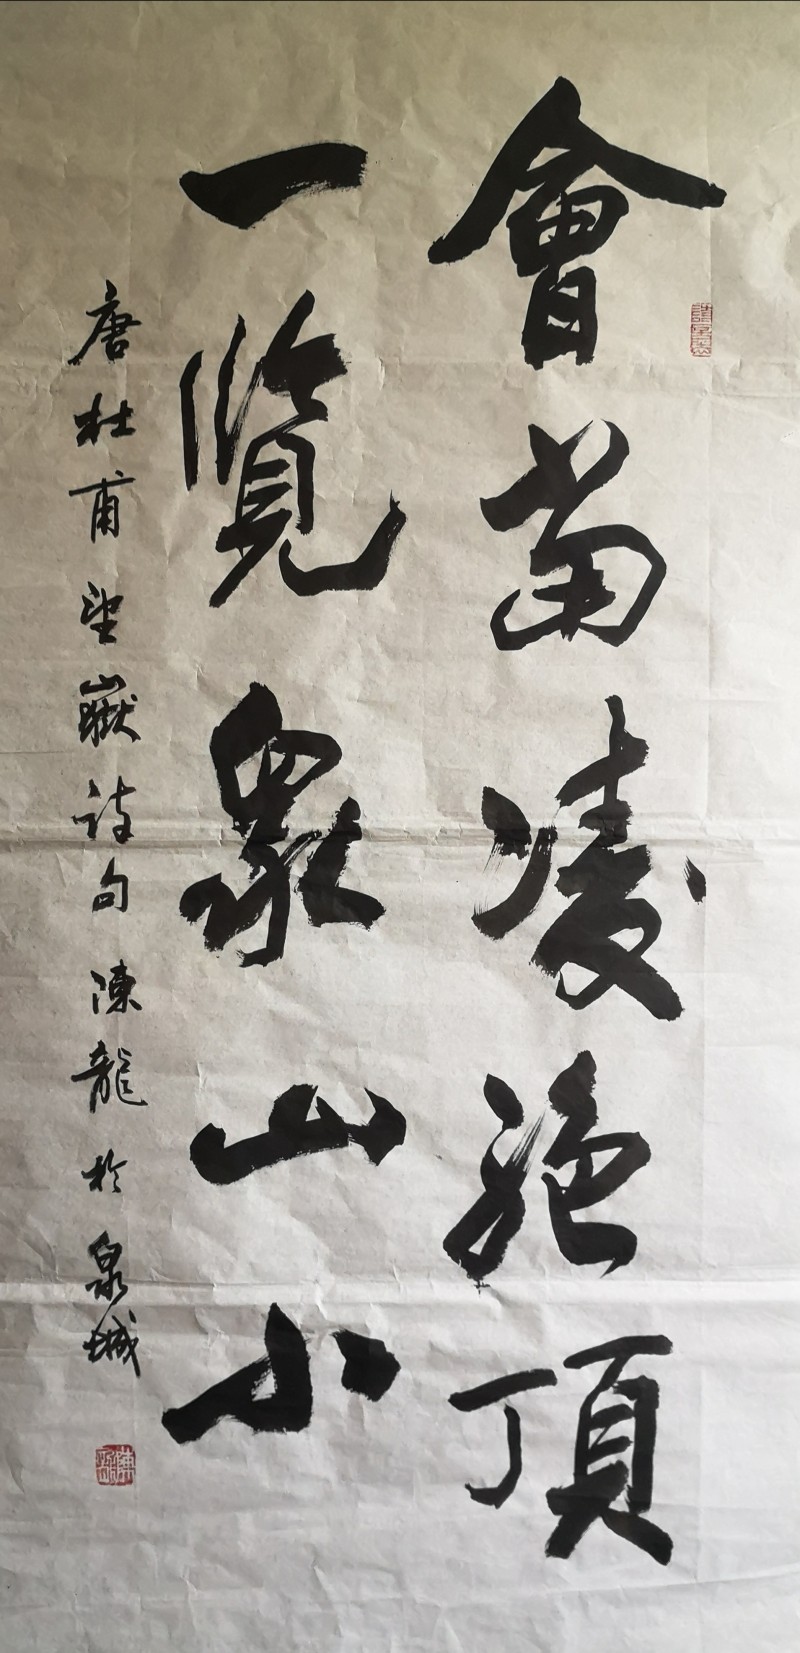 會當凌絶頂
一覽衆山小
唐杜甫望嶽詩句陳龍於泉城